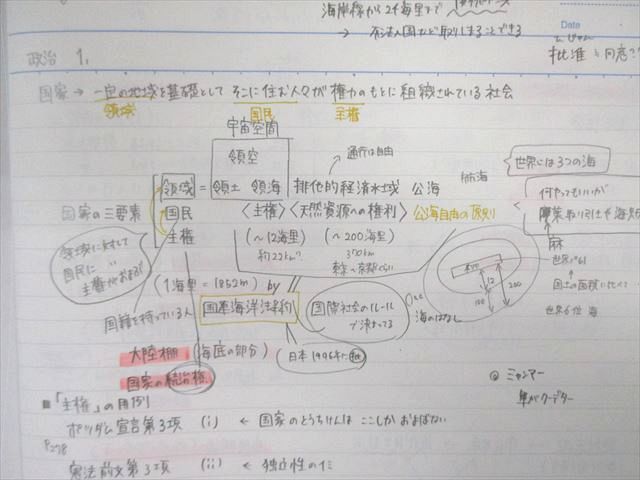 海岸線から24海里まで
→ 不法入国など取りしまることできる
Date
批准と同意?
政治 1.
国家 → 一定の地域を基礎として そこに住む人々が 権力のもとに組織されている社会
領域 国民 主権
宇宙空間
領空
通行は自由
領域 = 領土 領海 排他的経済水域 公海
航海
世界には3つの海
国家の三要素
国民 〈主権〉〈天然資源への権利〉 公海自由の原則
何やってもいいが
主権 (~12海里) (~200海里)
約22km? 370km
領域に対して
国民に 〃
主権がおよぶ
麻
(1海里=1852m) by
国連海洋法条約
国際社会のルール
で決まってる
海のはなし
12
200
国籍を持っている人
世界6位 海
大陸棚 (海底の部分) (日本1996年に批)
国家の統治権
◎ ミャンマー
軍がクーデター
■「主権」の用例
ポツダム宣言第8項 (i) ← 国家のとうちけんは ここしかおよばない
P.278
憲法前文第3項 (ii) ← 独立性のイミ